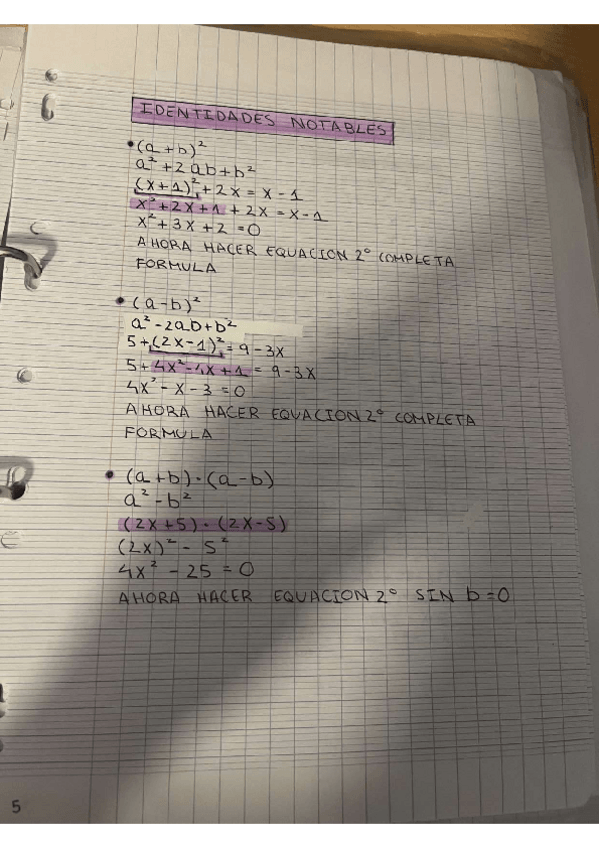 IDENTIDADES NOTABLES
• (a+b)²
a²+2ab+b²
(x+1)²+2x=x-1
x²+2x+1+2x=x-1
x²+3x+2=0
AHORA HACER EQUACION 2º COMPLETA
FORMULA
• (a-b)²
a²-2ab+b²
5+(2x-1)²=9-3x
5+4x²-4x+1=9-3x
4x²-x-3=0
AHORA HACER EQUACION 2º COMPLETA
FORMULA
• (a+b)·(a-b)
a²-b²
(2x+5)·(2x-5)
(2x)²-5²
4x²-25=0
AHORA HACER EQUACION 2º SIN b=0
5